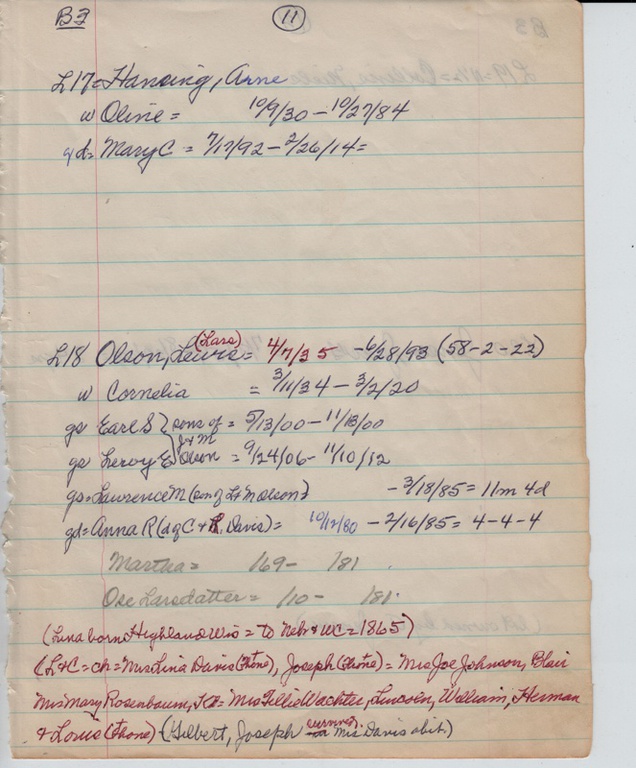 B3 11
L17 = Hansing, Arne
w Oline = 10/9/30 - 10/27/84
gd = Mary C = 7/17/92 - 2/26/14 =
(Lars)
L18 Olson, Lewis = 4/7/35 - 6/28/93 (58-2-22)
w Cornelia = 3/11/34 - 3/2/20
gs Earl S } sons of = 5/13/00 - 11/18/00
J & M
gs Leroy E } Olson = 9/24/06 - 11/10/12
gs = Lawrence M (son of L & M Olson) - 3/18/85 = 11m 4d
gd = Anna R (d of C & R. Davis) = 10/12/80 - 2/16/85 = 4-4-4
Martha = /69 - /81
Ose Larsdatter = /10 - /81.
(Lina born Highland Wis = to Nebr & WC = 1865)
(L & C = ch = Mrs Lina Davis (Phone), Joseph (Phone) = Mrs Joe Johnson, Blair
Mrs Mary Rosenbaum, = Mrs Tillie Wachter, Lincoln, William, Herman
& Louis (Phone) - (Gilbert, Joseph survived. Mrs Davis obit)